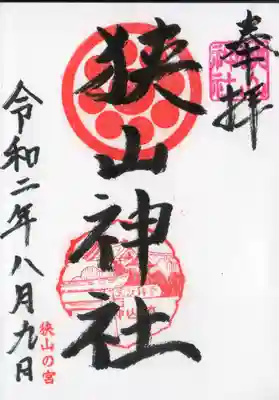 奉拝
狭山神社
令和二年八月九日
狭山の宮